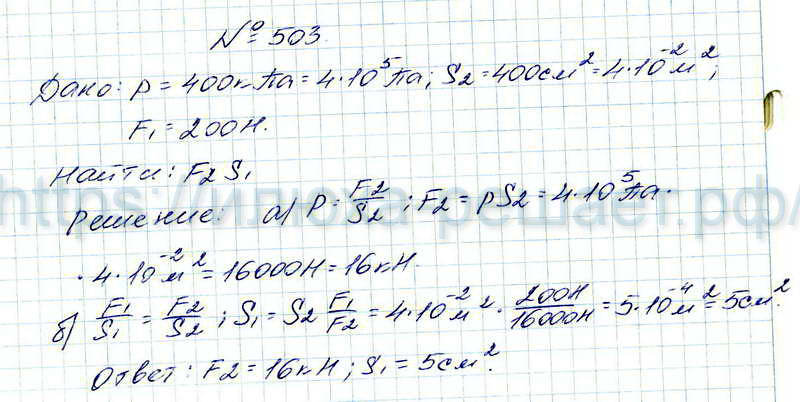 № 503.
Дано: p = 400кПа = 4·10⁵Па; S₂ = 400см² = 4·10⁻²м²;
F₁ = 200Н.
Найти: F₂ S₁
https://илюха-решает.рф/
Решение: а) P = F₂/S₂; F₂ = pS₂ = 4·10⁵Па·
·4·10⁻²м² = 16000Н = 16кН.
б) F₁/S₁ = F₂/S₂; S₁ = S₂ F₁/F₂ = 4·10⁻²м² · 200Н/16000Н = 5·10⁻⁴м² = 5см².
Ответ: F₂ = 16кН; S₁ = 5см².